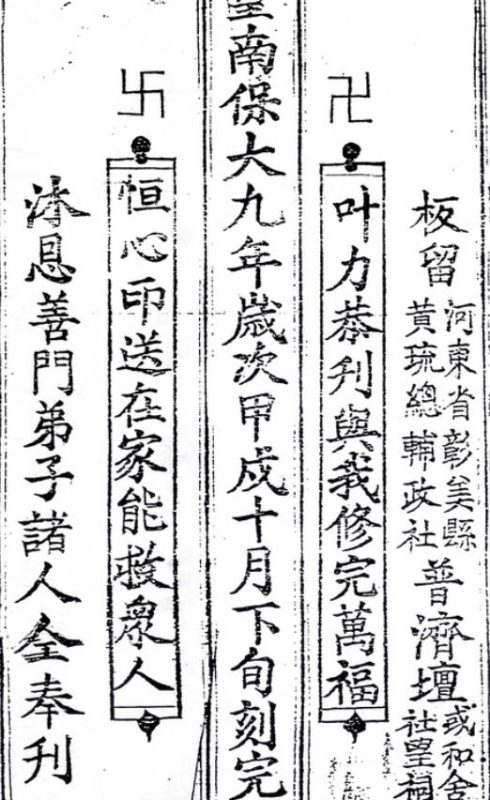 板留
河東省彰美縣
黃琉總輔政社
普濟壇
或和舍
社望祠
卍
叶力恭刋與我修完萬福
南保大九年歲次甲戍十月下旬刻完
卐
恒心印送在家能救衆人
沐恩善門弟子諸人仝奉刋